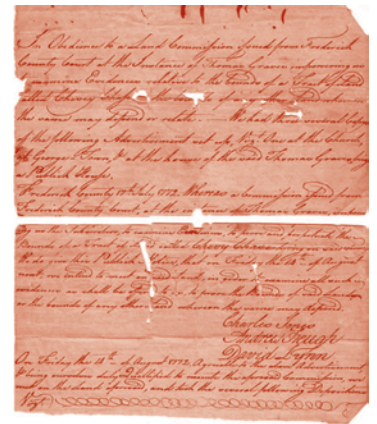 In Obedience to a Land Commission issued from Frederick
County Court at the Instance of Thomas Graves impowering us
to examine Evidences relative to the Bounds of a Tract of Land
called Chevey
the same may depend or relate We had have several Copys
of the following Advertisement set up, Viz.t One at the Church,
George Town, & at the house of the said Thomas Graves, being
a Publick House.
Frederick County 17th July 1772. Whereas a Commission issued from
Frederick County Court, at the Instance of Thomas Graves,
to us the Subscribers, to examine Evidences
Bounds of a Tract of Land called Chevey
We do give this Publick Notice that on Friday the 14th of August
next, we intend to meet on said Land, in order to examine all such
evidences as shall be to prove the Bounds of said Land or
on the bounds of any other Land whereon the same may depend.
Charles Jones
Andrew Heugh
David Lynn
On Friday the 14th of August 1772. Agreeable to the above Advertisement,
& being to execute this aforesaid Commission, we
met on the Land aforesaid, and took the several following Depositions
Viz.t